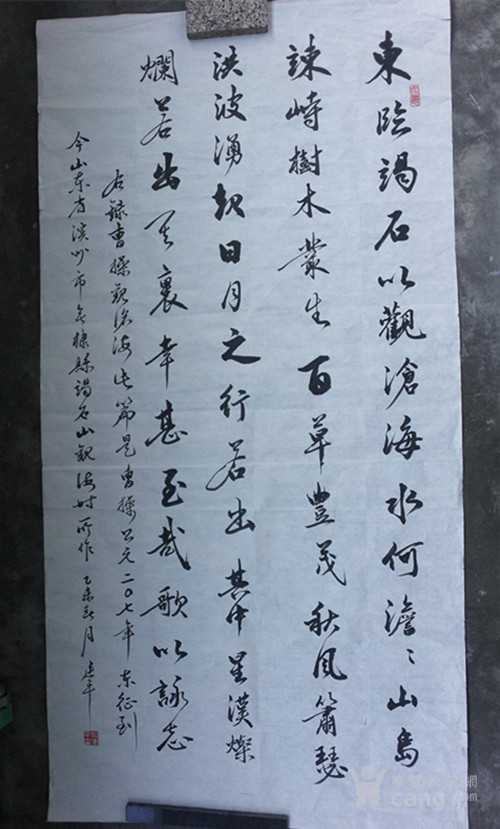 東臨竭石以觀滄海水何澹々山島
竦峙樹木叢生百草豐茂秋風簫瑟
洪波湧起日月之行若出其中星漢燦
爛若出其裏幸甚至哉歌以詠志
右録曹操觀滄海此篇是曹操公元二〇七年东征到
今山东省滨州市无棣縣竭石山觀海时所作 乙未春月
cang.com